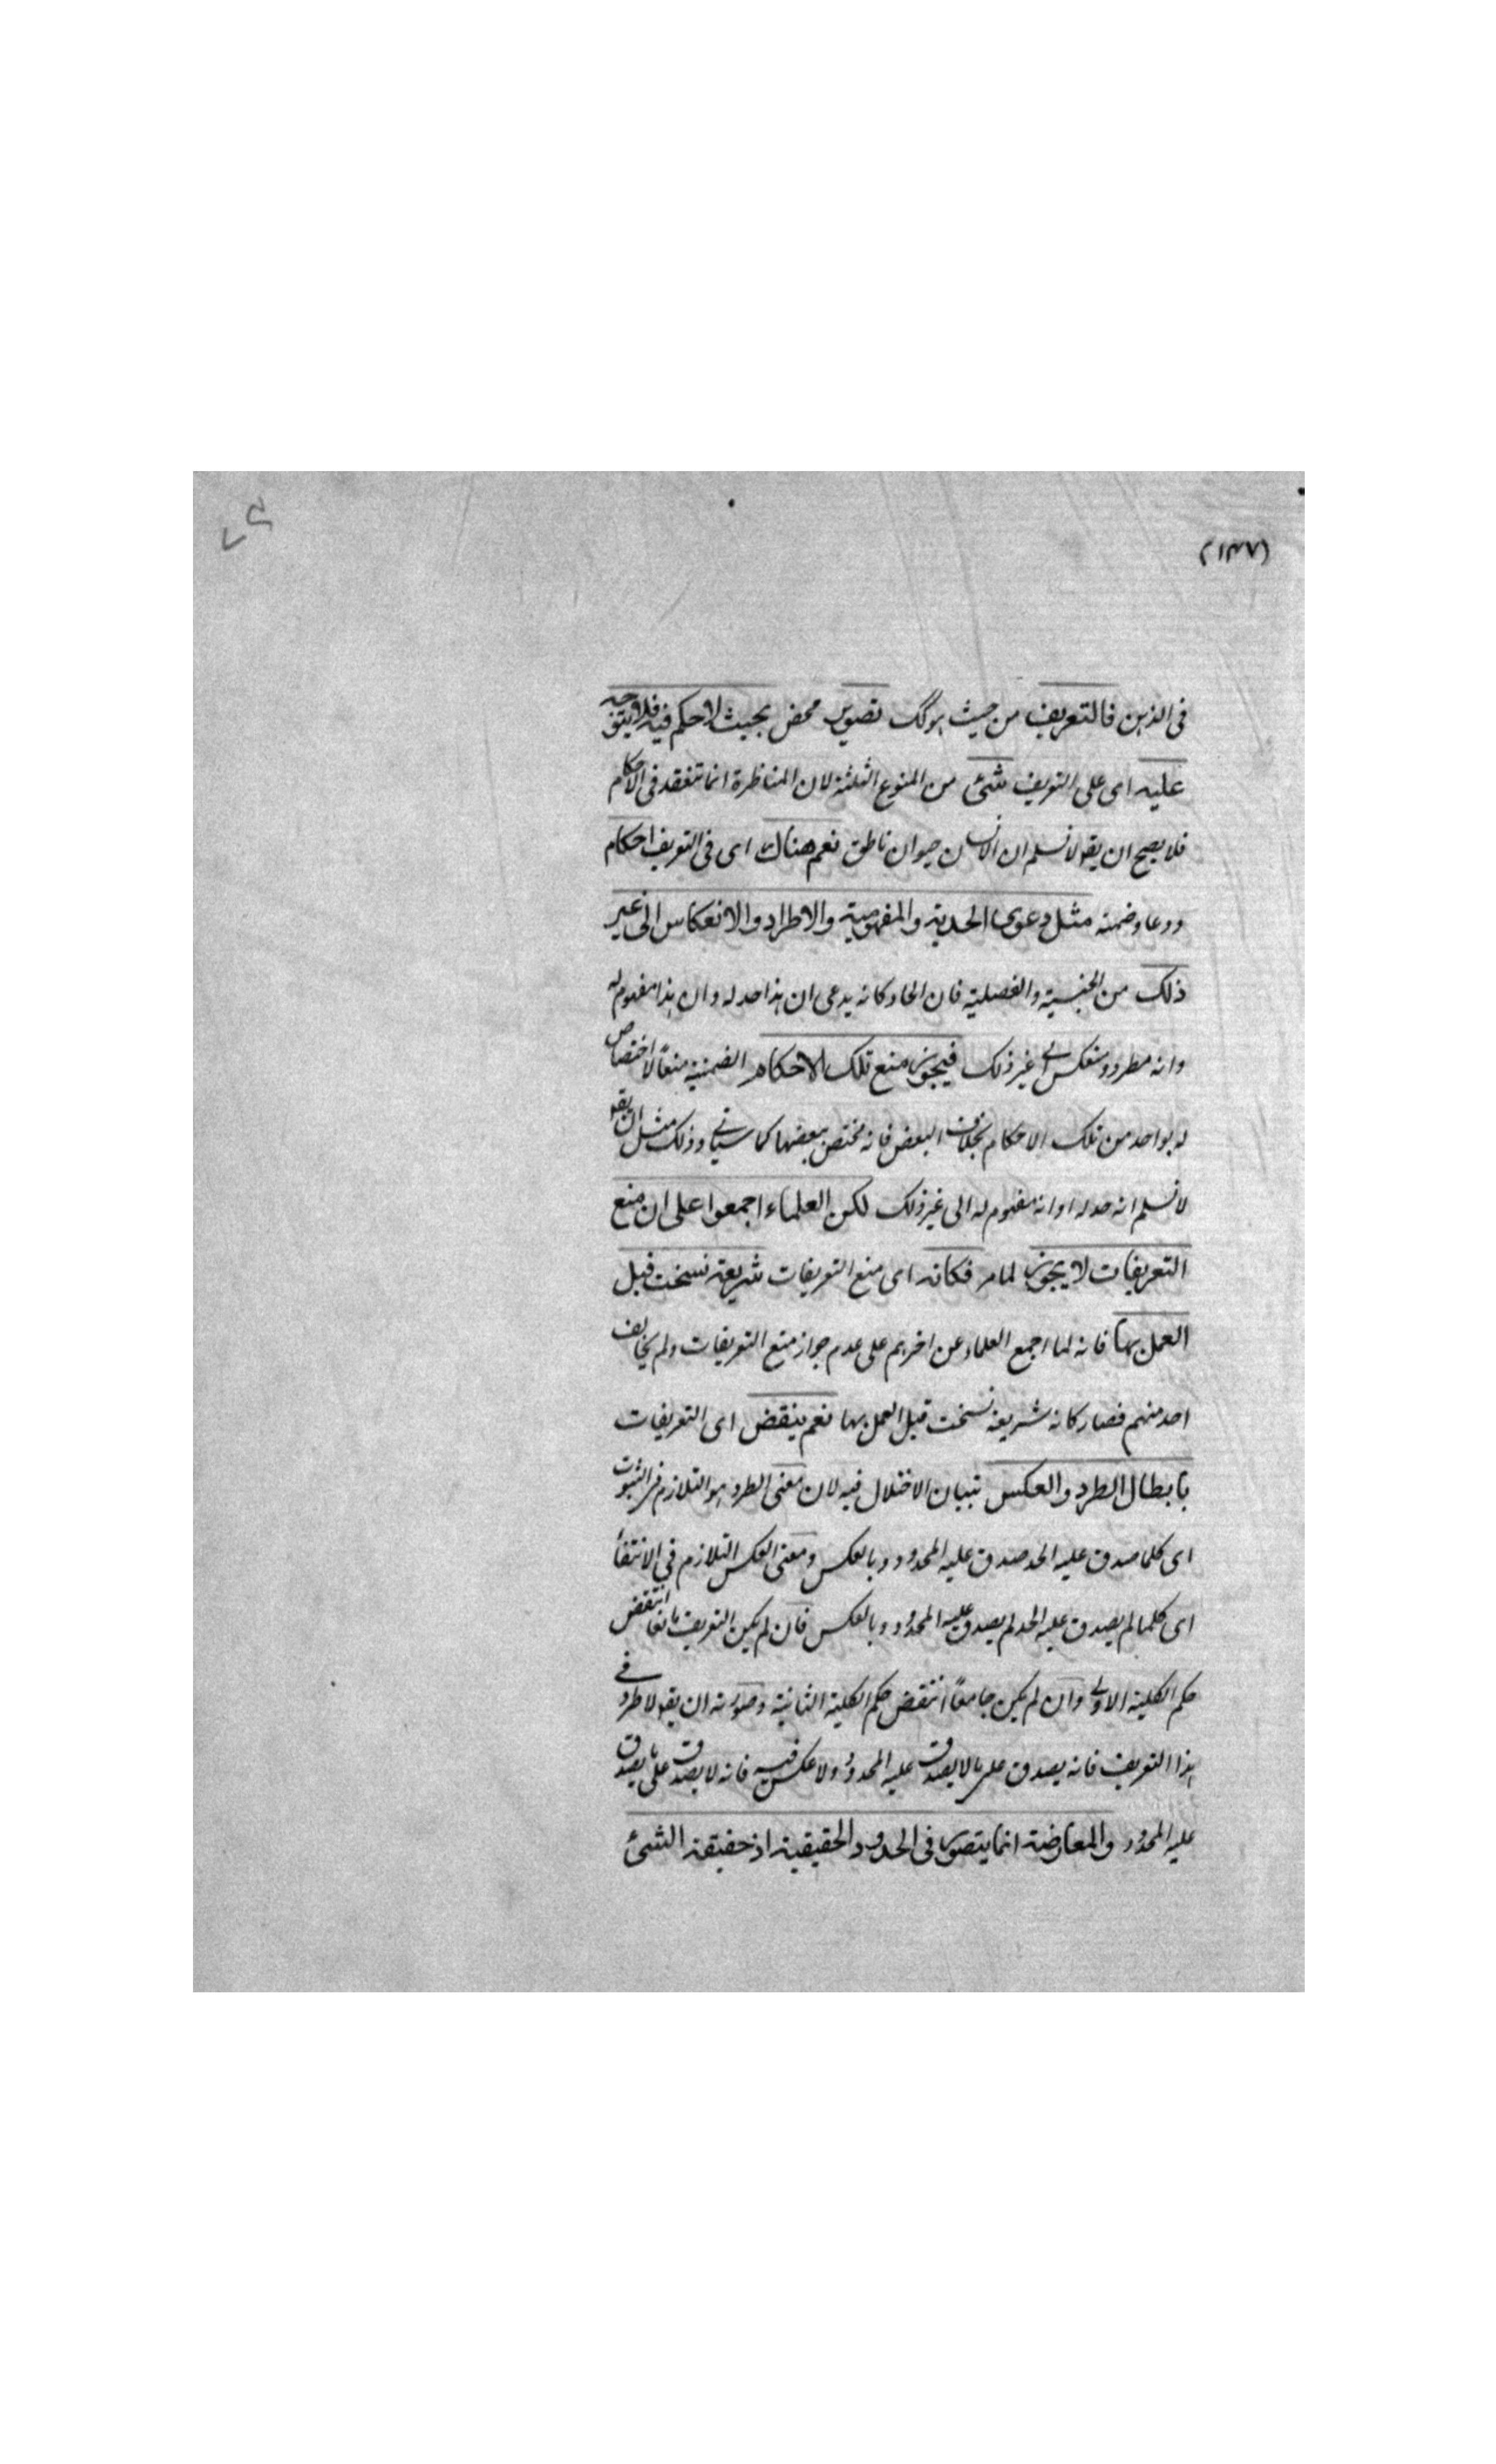 (١٣٧)
في الذهن فالتعريف من حيث هو كك تصوير محض بحيث لا حكم فيه فلا يتوجه
عليه اى على التعريف شئ من المنوع الثلثة لان المناظرة انما تنعقد فى الاحكام
فلا يصح ان يقو لا نسلم ان الانسان حيوان ناطق نعم هناك اى فى التعريف احكام
ودعاو ضمنه مثل دعوى الحدية والمفهومية والاطراد والانعكاس الى غير
ذلك من الجنسية والفصلية فان الحاد كانه يدعى ان هذا حد له وان هذا مفهوم له
وانه مطرد ومنعكس الى غير ذلك فيجوز منع تلك الاحكام الضمنية منعًا لا اختصاص
له بواحد من تلك الاحكام بخلاف البعض فانه مختص ببعضها كما سياتى وذلك مثل ان يقو
لا نسلم انه حد له او انه مفهوم له الى غير ذلك لكن العلماء اجمعوا على ان منع
التعريفات لا يجوز لما مر فكانه اى منع التعريفات شريعة نسخت قبل
العمل بها فانه لما اجمع العلماء عن اخرهم على عدم جواز منع التعريفات ولم يخالف
احد منهم فصار كانه شريعة نسخت قبل العمل بها نعم ينقض اى التعريفات
بابطال الطرد والعكس ببيان الاختلال فيه لان معنى الطرد هو التلازم فى الثبوت
اى كلما صدق عليه الحد صدق عليه المحدود وبالعكس ومعنى العكس التلازم في الانتفأ
اى كلما لم يصدق عليه الحد لم يصدق عليه المحدود وبالعكس فان لم يكن التعريف مانعا انتقض
حكم الكلية الاولى وان لم يكن جامعًا انتقض حكم الكلية الثانية وصورته ان يقو لا طرد فى
هذا التعريف فانه يصدق على ما لا يصدق عليه المحدود ولا عكس فيه فانه لا يصدق على ما يصدق
عليه المحدود والمعارضة انما يتصور فى الحدود الحقيقية اذ حقيقة الشئ